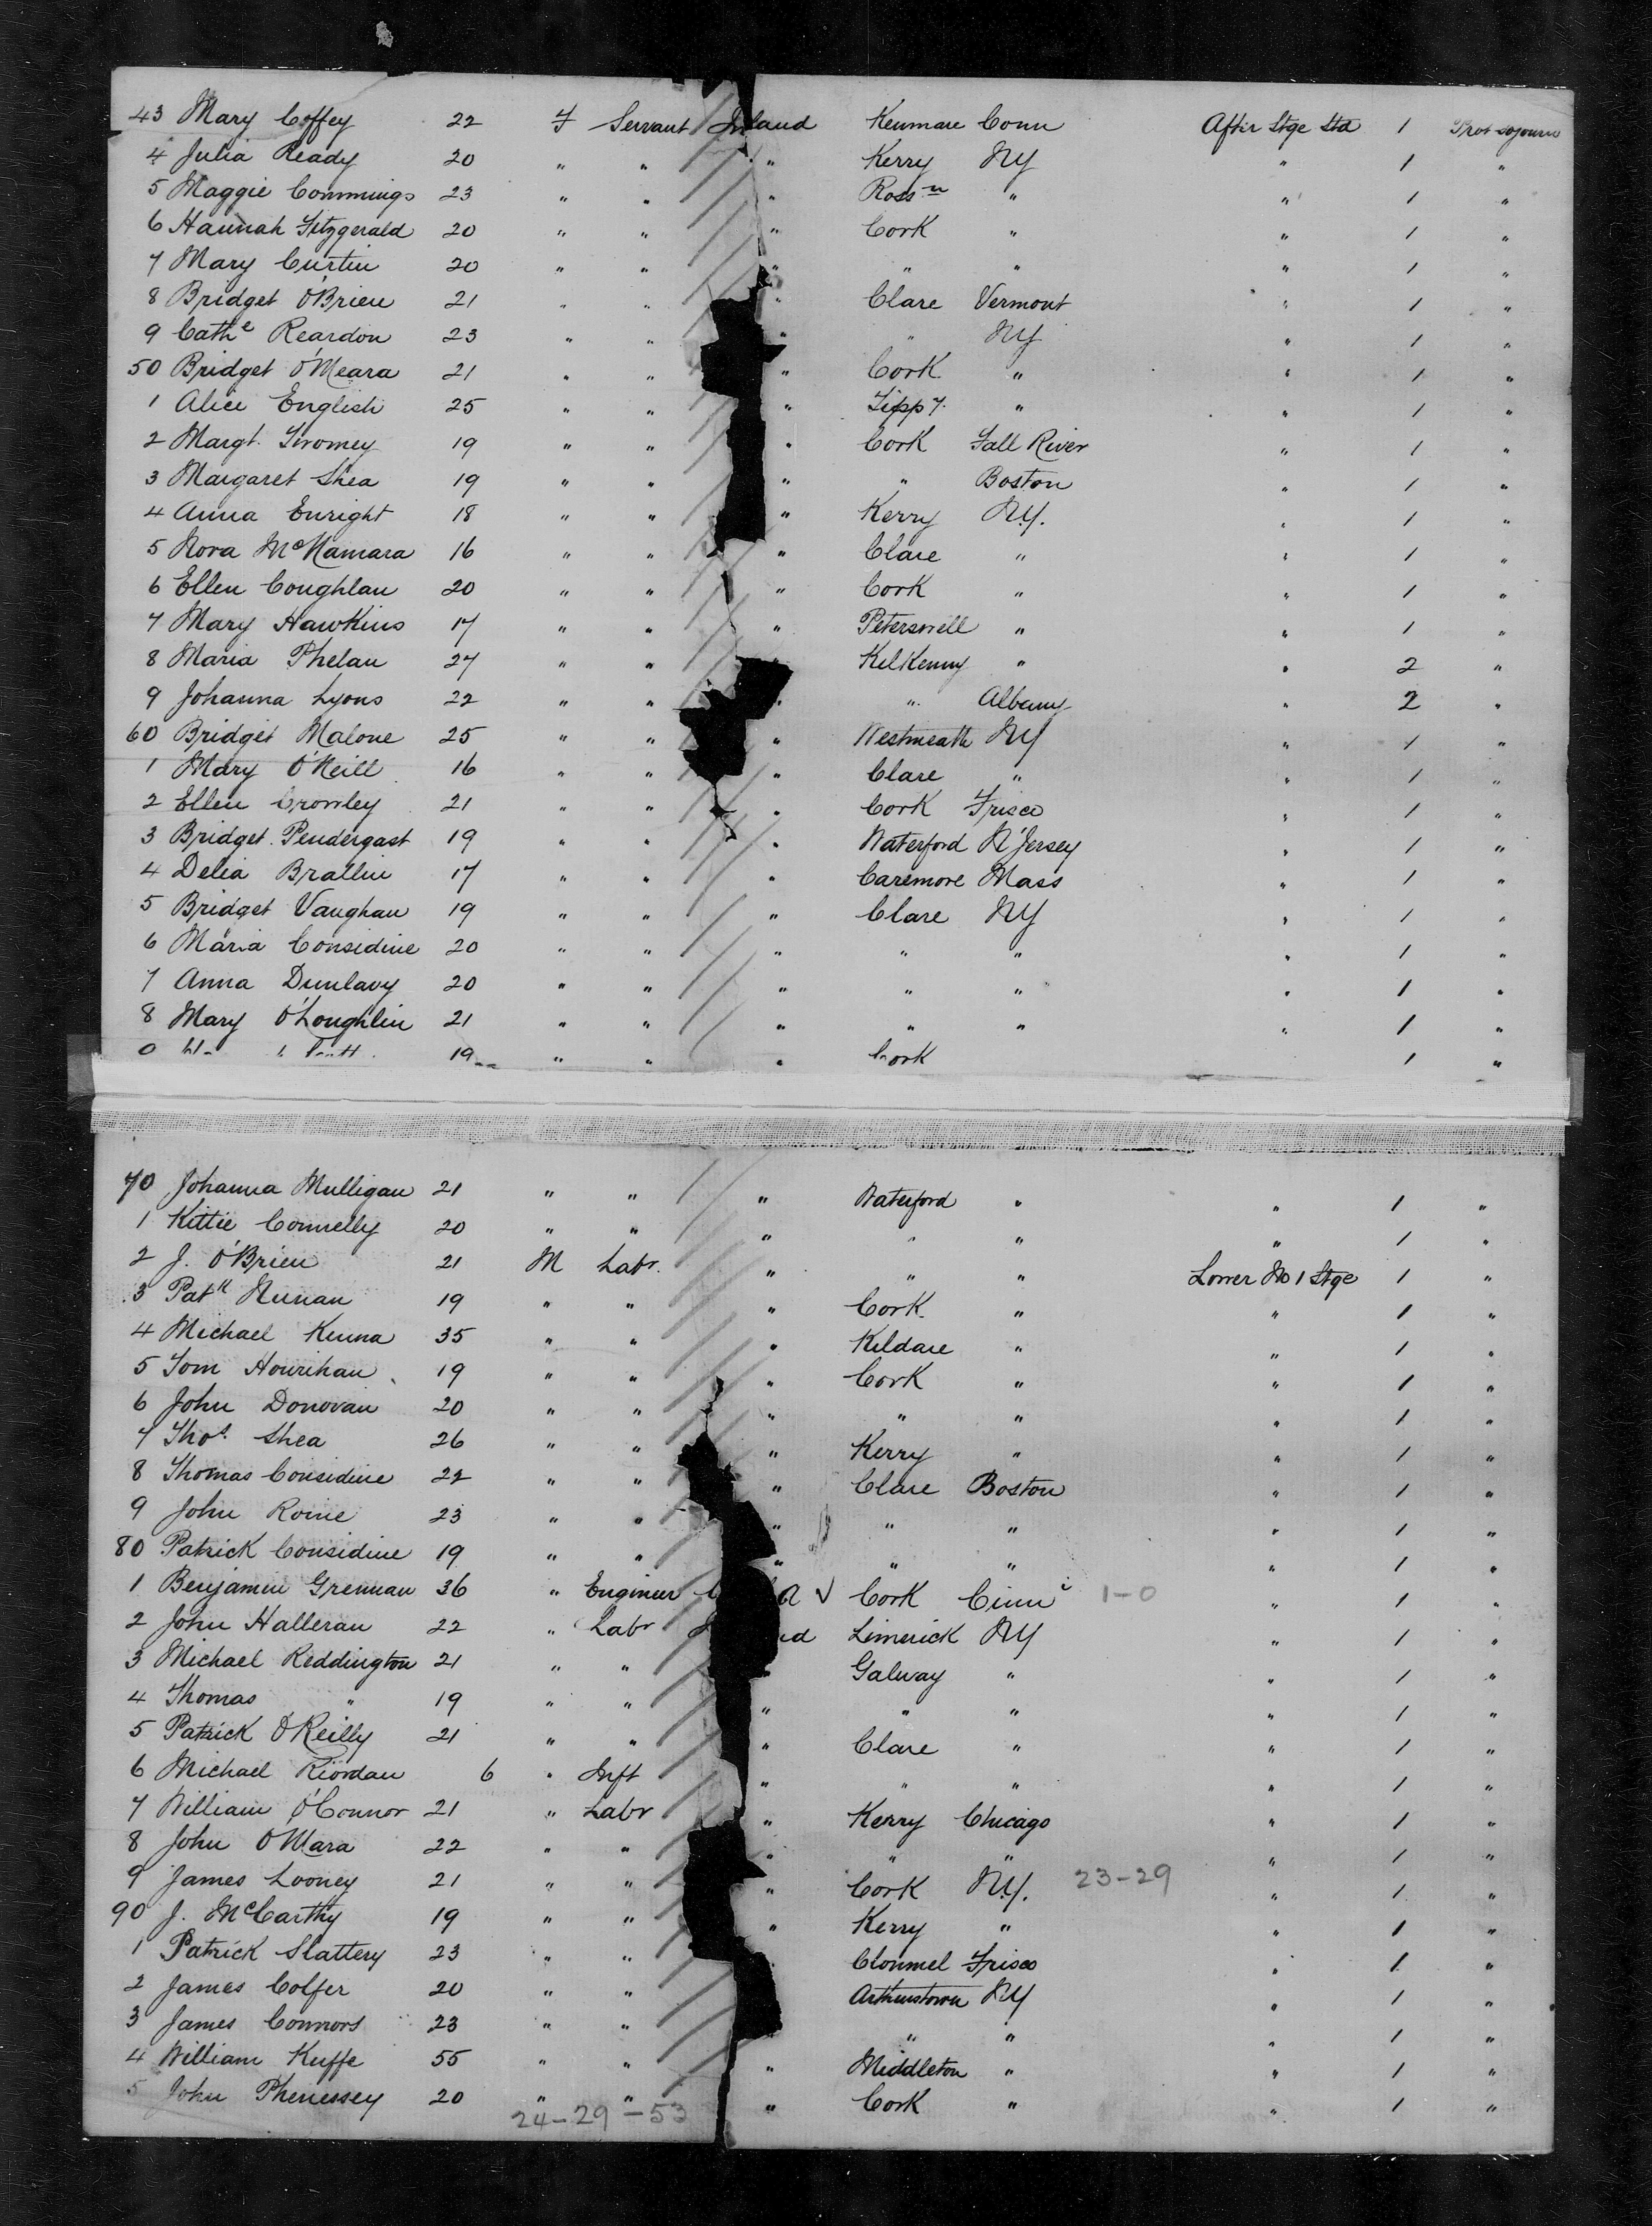 43 Mary Coffey 22 F Servant Ireland Kenmare Conn After Stge Std 1 Prot sojourn
4 Julia Ready 20 " " " Kerry NY " 1 "
5 Maggie Commings 23 " " " Ross " " 1 "
6 Hannah Fitzgerald 20 " " " Cork " " 1 "
7 Mary Curtin 20 " " " " " " 1 "
8 Bridget O'Brien 21 " " " Clare Vermont " 1 "
9 Cathe Reardon 23 " " " " NY " 1 "
50 Bridget O'Meara 21 " " " Cork " " 1 "
1 Alice English 25 " " " Tippy. " " 1 "
2 Margt. Twomey 19 " " " Cork Fall River " 1 "
3 Margaret Shea 19 " " " " Boston " 1 "
4 Anna Enright 18 " " " Kerry N.Y. " 1 "
5 Nora McNamara 16 " " " Clare " " 1 "
6 Ellen Coughlan 20 " " " Cork " " 1 "
7 Mary Hawkins 17 " " " Peterswell " " 1 "
8 Maria Phelan 27 " " Kilkenny " " 2 "
9 Johanna Lyons 22 " " " " Albany " 2 "
60 Bridget Malone 25 " " " Westmeath NY " 1 "
1 Mary O'Neill 16 " " " Clare " " 1 "
2 Ellen Crowley 21 " " " Cork Frisco " 1 "
3 Bridget Pendergast 19 " " " Waterford N'Jersey " 1 "
4 Delia Brallin 17 " " " Caremore Mass " 1 "
5 Bridget Vaughan 19 " " " Clare NY " 1 "
6 Maria Considine 20 " " " " " " 1 "
7 Anna Dunlavy 20 " " " " " " 1 "
8 Mary O'Loughlin 21 " " " " " " 1 "
19 " " " Cork 1 "
70 Johanna Mulligan 21 " " " Waterford " " 1 "
1 Kittie Connelly 20 " " " " " " 1 "
2 J. O'Brien 21 M Labr. " " " Lower No 1 Stge 1 "
3 Patk Nunan 19 " " " Cork " " 1 "
4 Michael Kenna 35 " " " Kildare " " 1 "
5 Tom Hourihan 19 " " " Cork " " 1 "
6 John Donovan 20 " " " " " " 1 "
7 Thos. Shea 26 " " " Kerry " " 1 "
8 Thomas Considine 22 " " " Clare Boston " 1 "
9 John Roine 23 " " " " " " 1 "
80 Patrick Considine 19 " " " " " " 1 "
1 Benjamin Grennan 36 " Engineer Cork Cinni 1-0 " 1 "
2 John Halleran 22 " Labr Limerick NY " 1 "
3 Michael Reddington 21 " " Galway " " 1 "
4 Thomas " 19 " " " " " " 1 "
5 Patrick O'Reilly 21 " " " Clare " " 1 "
6 Michael Riordan 6 " Inft " " " " 1 "
7 William O'Connor 21 " Labr " Kerry Chicago " 1 "
8 John O'Mara 22 " " " " " " 1 "
9 James Looney 21 " " " Cork N.Y. 23-29 " 1 "
90 J. McCarthy 19 " " " Kerry " " 1 "
1 Patrick Slattery 23 " " " Clonmel Frisco " 1 "
2 James Colfer 20 " " Arthurstown NY " 1 "
3 James Connors 23 " " " " " 1 "
4 William Keffe 55 " " " Middleton " " 1 "
5 John Phenessey 20 " " " Cork " " 1 "
24-29-53